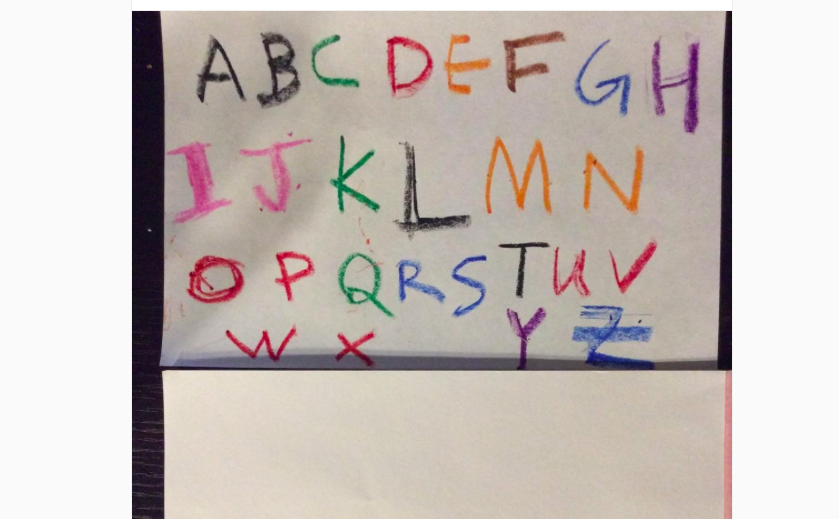 A B C D E F G H
I J K L M N
O P Q R S T U V
W X Y Z